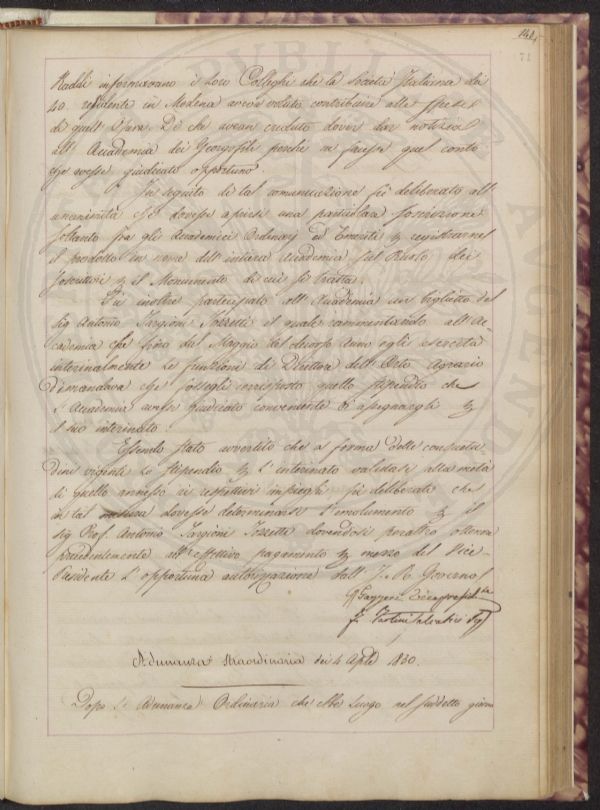 141,
71
Raddi informavano i loro Colleghi che la Società Italiana dei
40. residente in Modena aveva voluto contribuire alle spese
di quell'Opera. Di che avean creduto dover dar notizia
all'Accademia dei Georgofili perchè ne facesse quel conto
che avesse giudicato opportuno.
In seguito di tal comunicazione fù deliberato all'
unanimità che dovesse aprirsi una particolare soscrizione
soltanto frà gli Accademici Ordinarj ed Emeriti registrarne
il prodotto in nome dell'intiera Accademia sul Ruolo dei
Soscrittori il Monumento di cui si tratta.
Fù inoltre partecipato all'Accademia un biglietto del
Sig Antonio Targioni Tozzetti il quale rammentando all'Ac-
cademia che fino dal Maggio del decorso Anno egli esercita
interinalmente le funzioni di Direttore dell'Orto Agrario
dimandava che fossegli corrisposto quello stipendio che
l'Accademia avesse giudicato conveniente di assegnargli
il suo interinato.
Essendo stato avvertito che a forma delle consuetu-
dini vigenti lo stipendio l'interinato valutasi alla metà
di quello annesso ai respettivi impieghi fù deliberato che
in tal misura dovesse determinarsi l'emolumento il
Sig Prof. Antonio Targioni Tozzetti dovendosi peraltro ottenere
precedentemente all'effettivo pagamento mezzo del Vice-
Presidente l'opportuna autorizzazione dall'I. e R. Governo
Gazzeri Vicepresid.te
F. Tartini Salvatici Seg
Adunanza straordinaria dei 4 Aple 1830.
Dopo l'Adunanza Ordinaria che ebbe luogo nel suddetto giorno